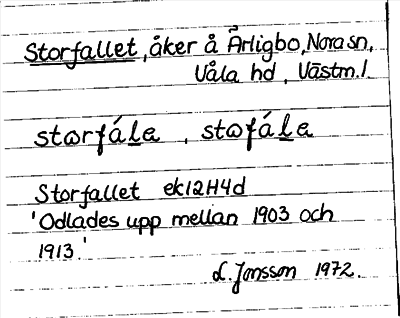 Storfallet, åker å Ärligbo, Nora sn,
Våla hd, Västm.l.
stωrfála, stωfála
Storfallet ek12H4d
'Odlades upp mellan 1903 och
1913.'
L. Jonsson 1972.